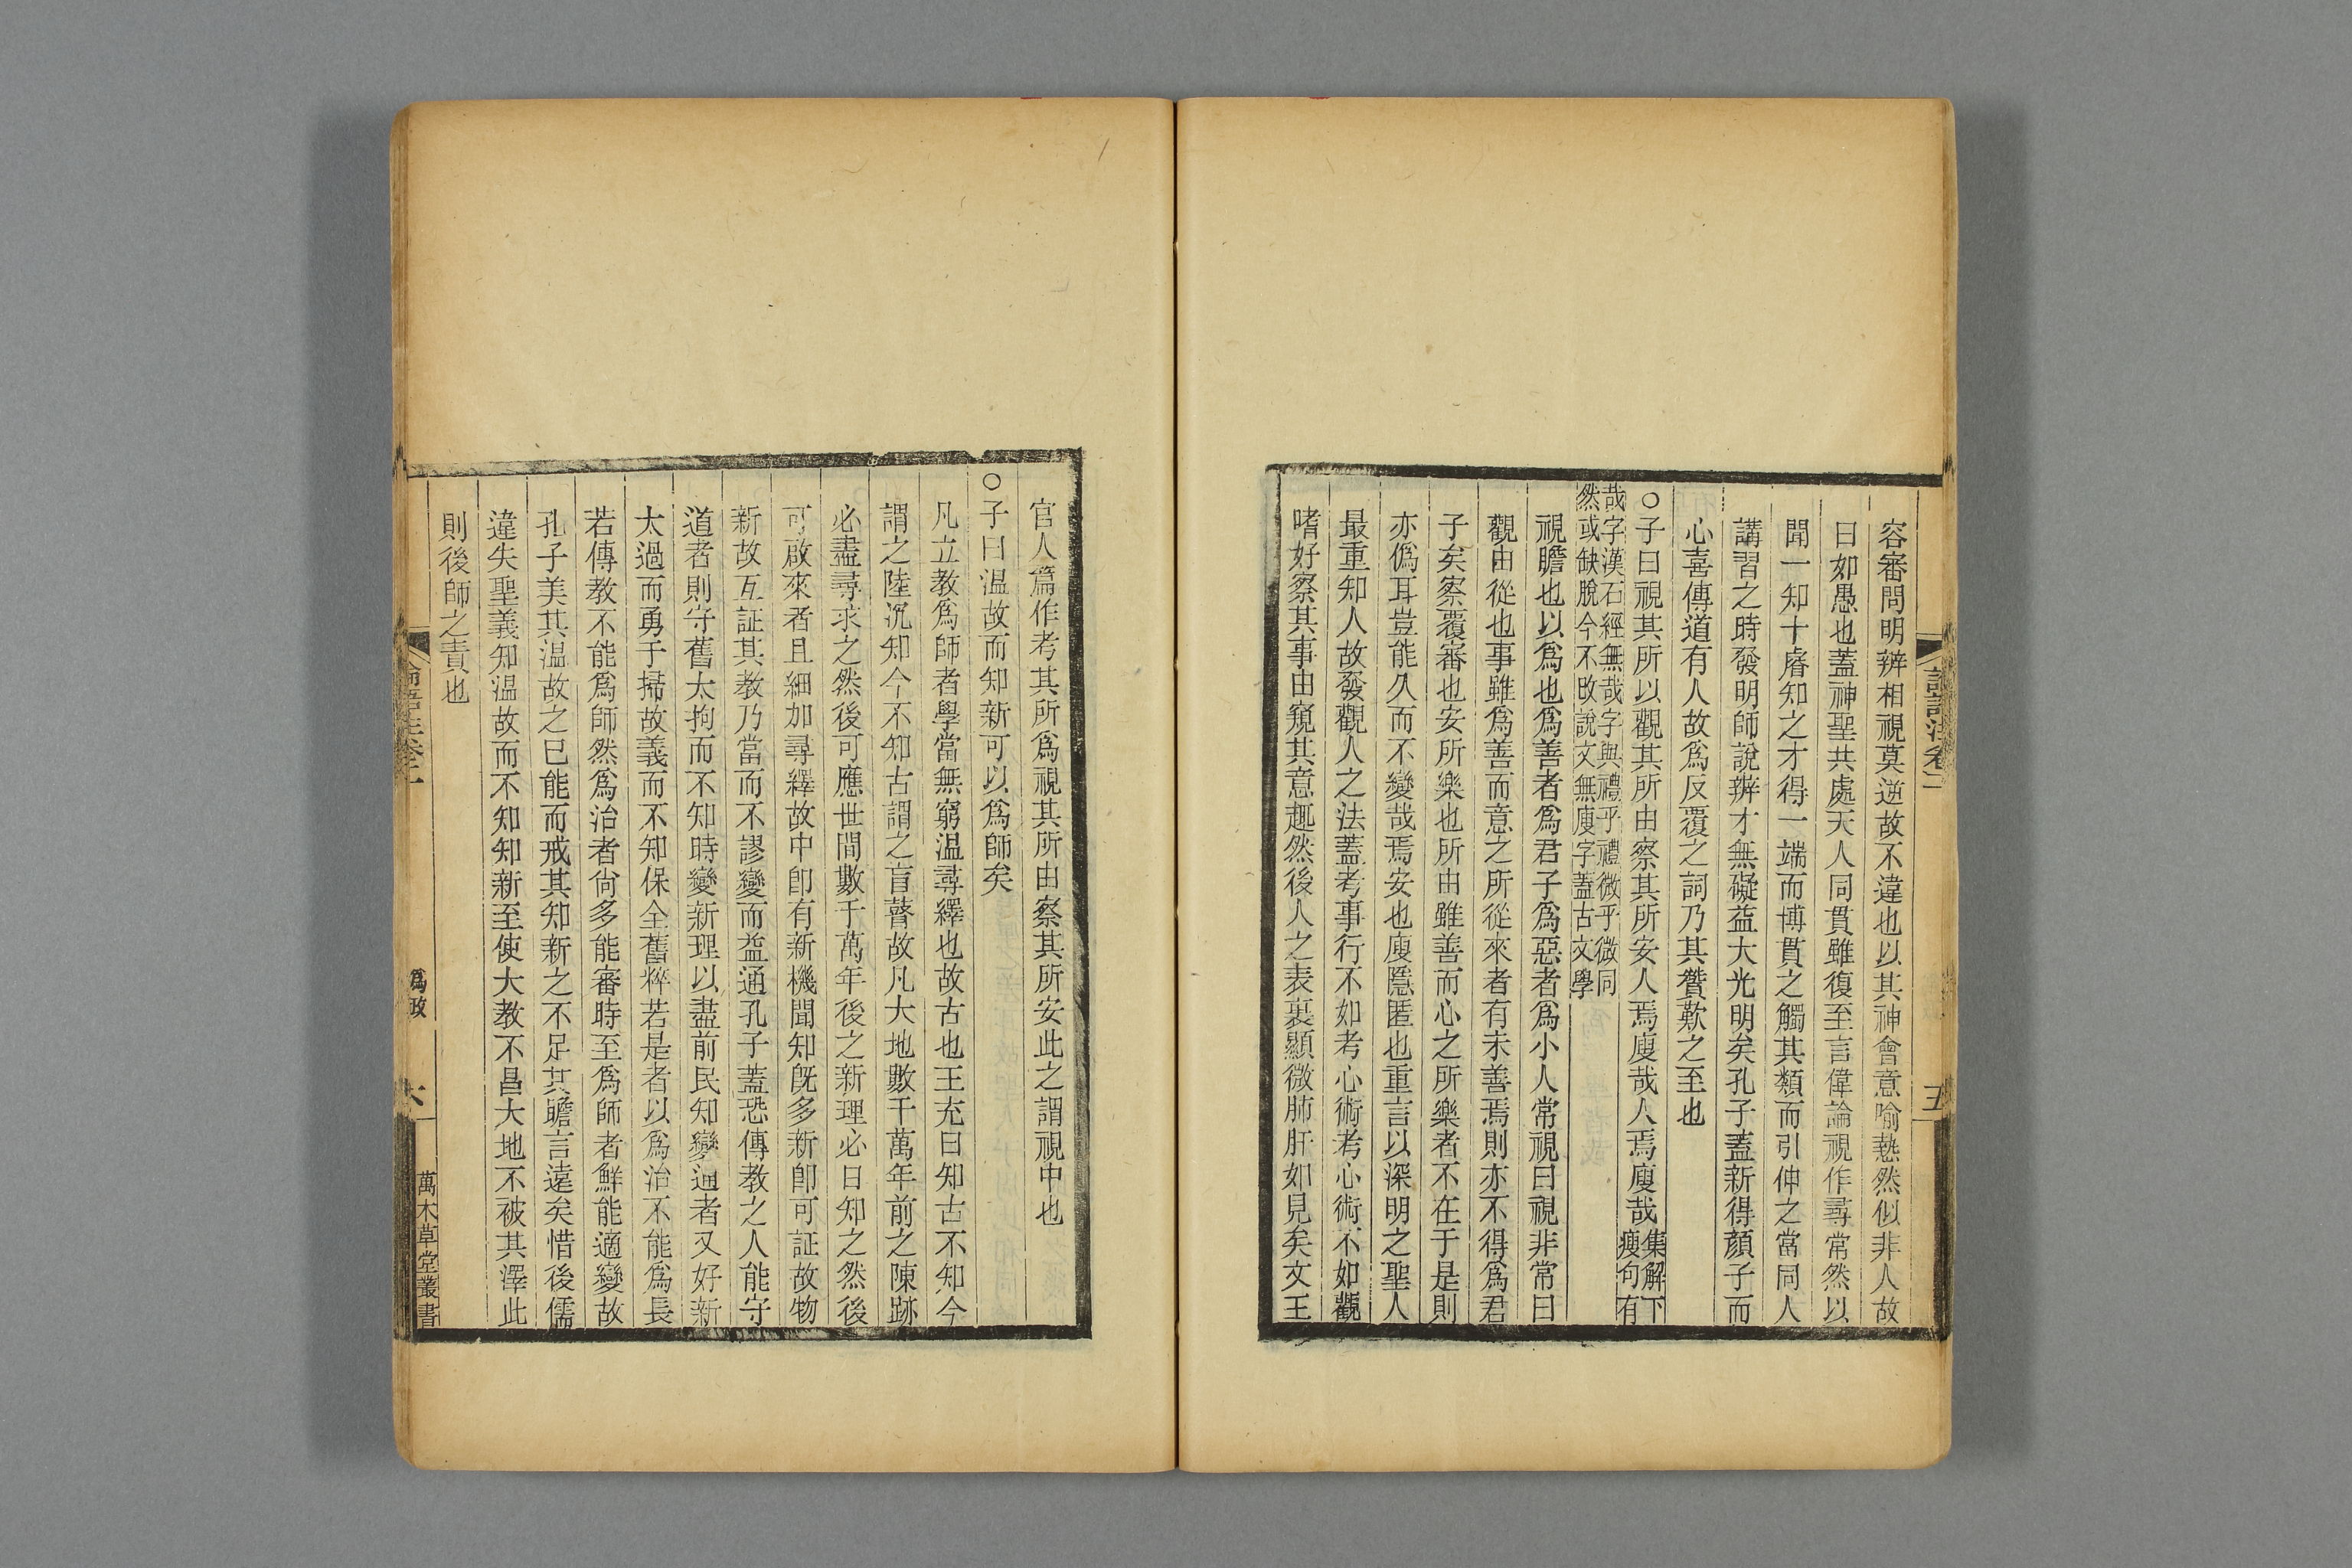 容審問明辨相視莫逆故不違也以其神會意喻熱然似非人故
曰如愚也蓋神聖共處天人同貫雖復至言偉論視作尋常然以
聞一知十睿知之才得一端而博貫之觸其類而引伸之當同人
講習之時發明師說辨才無礙益大光明矣孔子蓋新得顏子而
心喜傳道有人故爲反覆之詞乃其贊歎之至也
○子曰視其所以觀其所由察其所安人焉廋哉人焉廋哉集解下
廋句有
哉字漢石經無哉字與禮乎禮微乎微同
然或缺脫今不敢說文無廋字蓋古文學
視瞻也以爲也爲善者爲君子爲惡者爲小人常視曰視非常曰
觀由從也事雖爲善而意之所從來者有未善焉則亦不得爲君
子矣察覆審也安所樂也所由雖善而心之所樂者不在于是則
亦僞耳豈能久而不變哉焉安也廋隱匿也重言以深明之聖人
最重知人故發觀人之法蓋考事行不如考心術考心術不如觀
嗜好察其事由窺其意趣然後人之表裏顯微肺肝如見矣文王
論語注卷二
五
官人篇作考其所爲視其所由察其所安此之謂視中也
○子曰温故而知新可以爲師矣
凡立教爲師者學當無窮温尋繹也故古也王充曰知古不知今
謂之陸沉知今不知古謂之盲瞽故凡大地數千萬年前之陳跡
必盡尋求之然後可應世間數千萬年後之新理必日知之然後
可啟來者且細加尋繹故中卽有新機聞知旣多新卽可証故物
新故互証其教乃當而不謬變而益通孔子蓋恐傳教之人能守
道者則守舊太拘而不知時變新理以盡前民知變通者又好新
太過而勇于掃故義而不知保全舊粹若是者以爲治不能爲長
若傳教不能爲師然爲治者尙多能審時至爲師者鮮能適變故
孔子美其温故之已能而戒其知新之不足其瞻言遠矣惜後儒
違失聖義知温故而不知知新至使大教不昌大地不被其澤此
則後師之責也
論語注卷二
爲政
六
萬木草堂叢書